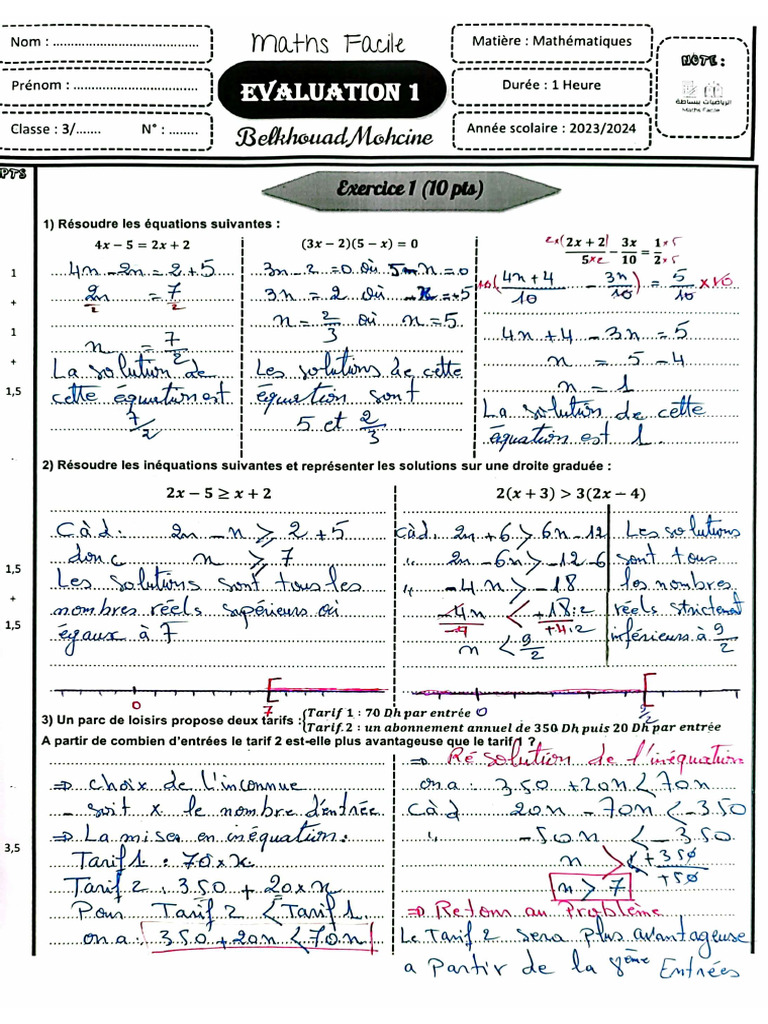 Nom : ........................................
Maths Facile
Matière : Mathématiques
NOTE :
Prénom : ..................................
EVALUATION 1
Durée : 1 Heure
الرياضيات ببساطة
Maths Facile
Classe : 3/....... N° : ........
Belkhouad Mohcine
Année scolaire : 2023/2024
PTS
Exercice 1 (10 pts)
1) Résoudre les équations suivantes :
4x − 5 = 2x + 2
4x − 2x = 2 + 5
2x/2 = 7/2
x = 7/2
La solution de
cette équation est
7/2
(3x − 2)(5 − x) = 0
3x − 2 = 0 où 5 − x = 0
3x = 2 où − x = −5
x = 2/3 où x = 5
Les solutions de cette
équation sont
5 et 2/3
2×(2x + 2)/5×2 − 3x/10 = 1×5/2×5
10((4x + 4)/10 − 3x/10) = 5/10 ×10
4x + 4 − 3x = 5
x = 5 − 4
x = 1
La solution de cette
équation est 1.
1
+
1
+
1,5
2) Résoudre les inéquations suivantes et représenter les solutions sur une droite graduée :
2x − 5 ≥ x + 2
Càd. 2x − x ≥ 2 + 5
donc x ≥ 7
Les solutions sont tous les
nombres réels supérieurs où
égaux à 7
0 [ 7
2(x + 3) > 3(2x − 4)
càd. 2x + 6 > 6x − 12
" 2x − 6x > −12 − 6
" −4x > −18
−4x/−4 < +18:2/+4:2
x < 9/2
Les solutions
sont tous
les nombres
réels strictement
inférieurs à 9/2
0 [ 9/2
1,5
+
1,5
3) Un parc de loisirs propose deux tarifs : {Tarif 1 : 70 Dh par entrée
{Tarif 2 : un abonnement annuel de 350 Dh puis 20 Dh par entrée
A partir de combien d'entrées le tarif 2 est-elle plus avantageuse que le tarif 1 ?
⇒ choix de l'inconnue
– soit x le nombre d'entrée
⇒ La mises en inéquation:
Tarif 1 : 70 × x
Tarif 2 : 350 + 20 × x
Pour Tarif 2 < Tarif 1.
on a : 350 + 20x < 70x
⇒ Résolution de l'inéquation
on a : 350 + 20x < 70x
Càd 20x − 70x < −350
" −50x < −350
x > +350/+50
x > 7
⇒ Retour au Problème
Le Tarif 2 sera plus avantageuse
a Partir de la 8ème Entrées
3,5